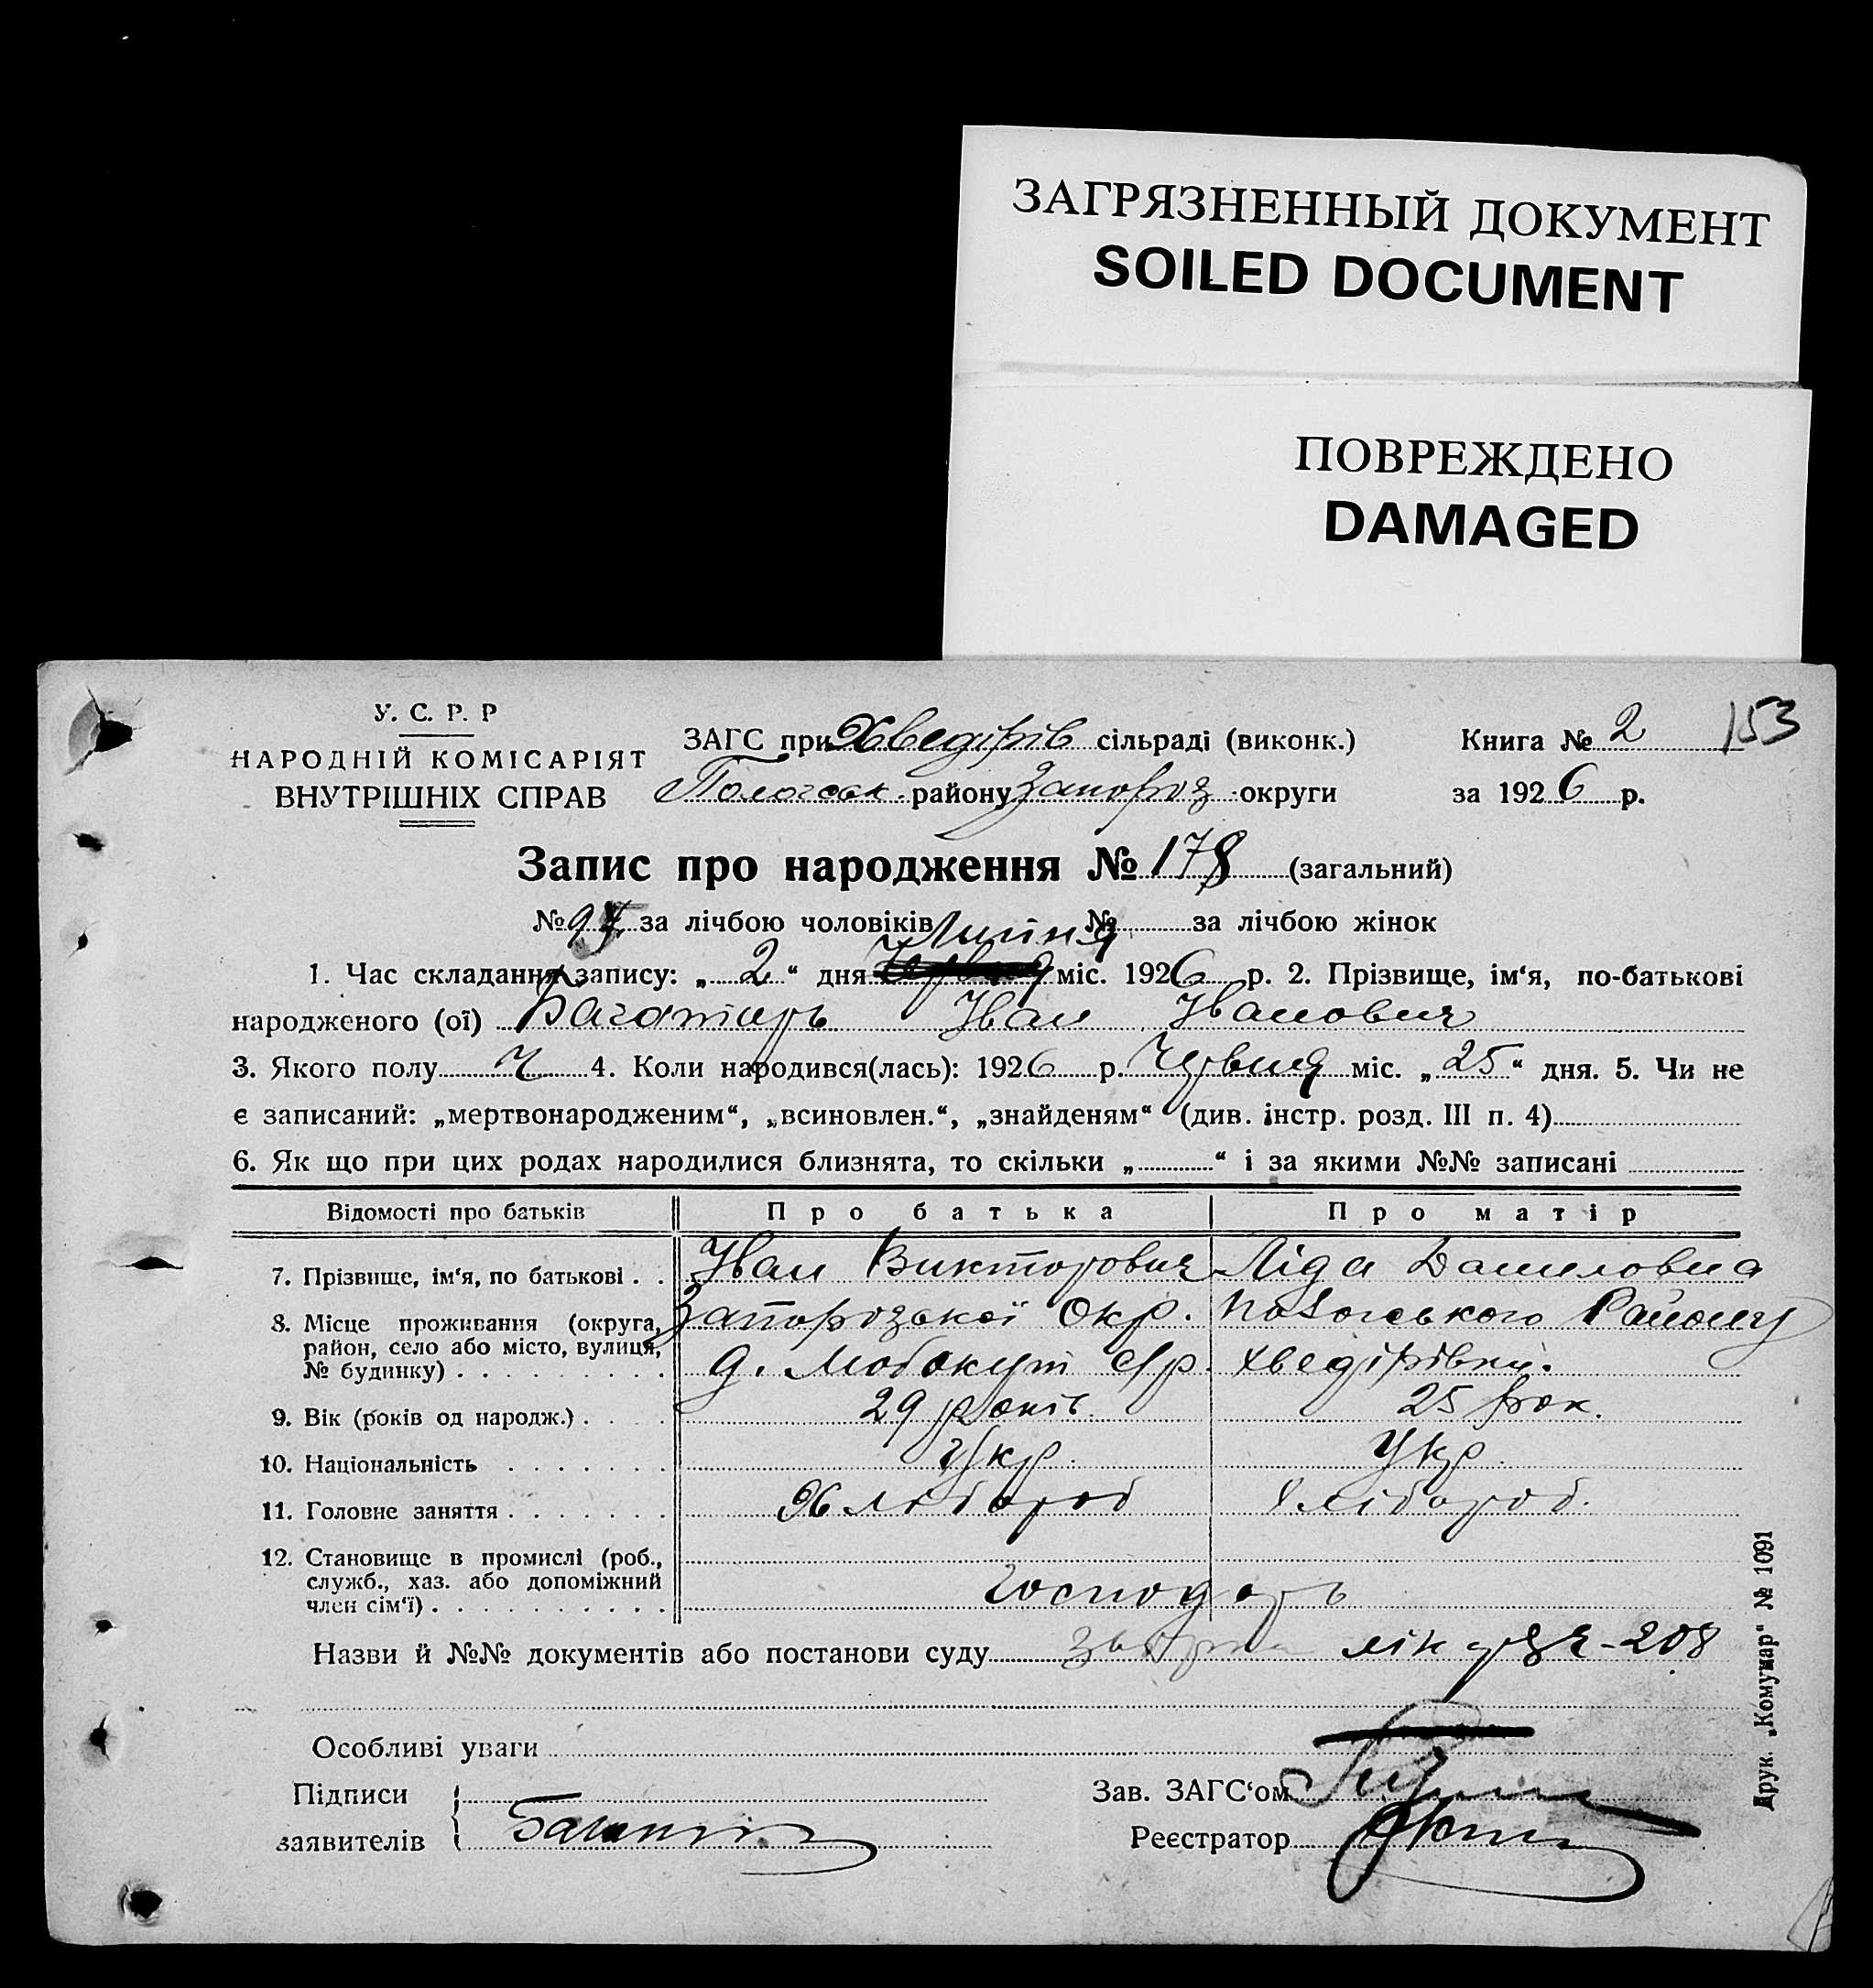 ЗАГРЯЗНЕННЫЙ ДОКУМЕНТ
SOILED DOCUMENT
ПОВРЕЖДЕНО
DAMAGED
У. С. Р. Р
НАРОДНІЙ КОМІСАРІЯТ
ВНУТРІШНІХ СПРАВ
ЗАГС при Хведірів сільраді (виконк.)
Пологськ. району Запороз. округи
Книга № 2
153
за 1926 р.
Запис про народження № 178 (загальний)
№ 97 за лічбою чоловіків № за лічбою жінок
Липня
1. Час складання запису: „ 2 “ дня міс. 1926 р. 2. Прізвище, ім‘я, по-батькові
народженого (ої) Багатирь Іван Іванович
3. Якого полу Ч 4. Коли народився(лась): 1926 р. Червня міс. „ 25 “ дня. 5. Чи не
є записаний: „мертвонародженим“, „всиновлен.“, „знайденям“ (див. інстр. розд. III п. 4)
6. Як що при цих родах народилися близнята, то скільки „ “ і за якими №№ записані
Відомості про батьків Про батька Про матір
7. Прізвище, ім‘я, по батькові . . Іван Викторович Ліда Даниловна
8. Місце проживання (округа, Запорозької Окр. Пологського Району
район, село або місто, вулиця,
№ будинку) . . . . . . . . . Хведірівка.
9. Вік (років од народж.) . . . 29 років. 25 рок.
10. Національність . . . . . . . Укр. Укр.
11. Головне заняття . . . . . . . Хлібороб Хлібороб.
12. Становище в промислі (роб.,
служб., хаз. або допоміжний
член сім‘ї) . . . . . . . . . . господарь
Назви й №№ документів або постанови суду 208
Особливі уваги
Підписи
заявителів Багатир
Зав. ЗАГС‘ом
Реєстратор
Друк. „Комунар“ № 1091